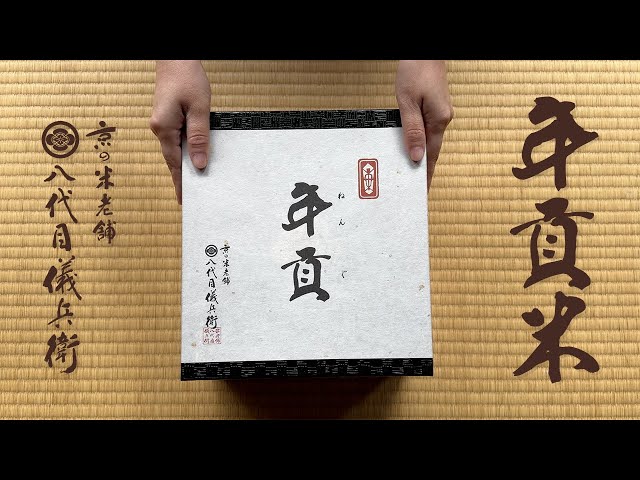 年貢米
年貢
ねんぐ
京の米老舗
八代目儀兵衛
京の米老舗
八代目儀兵衛